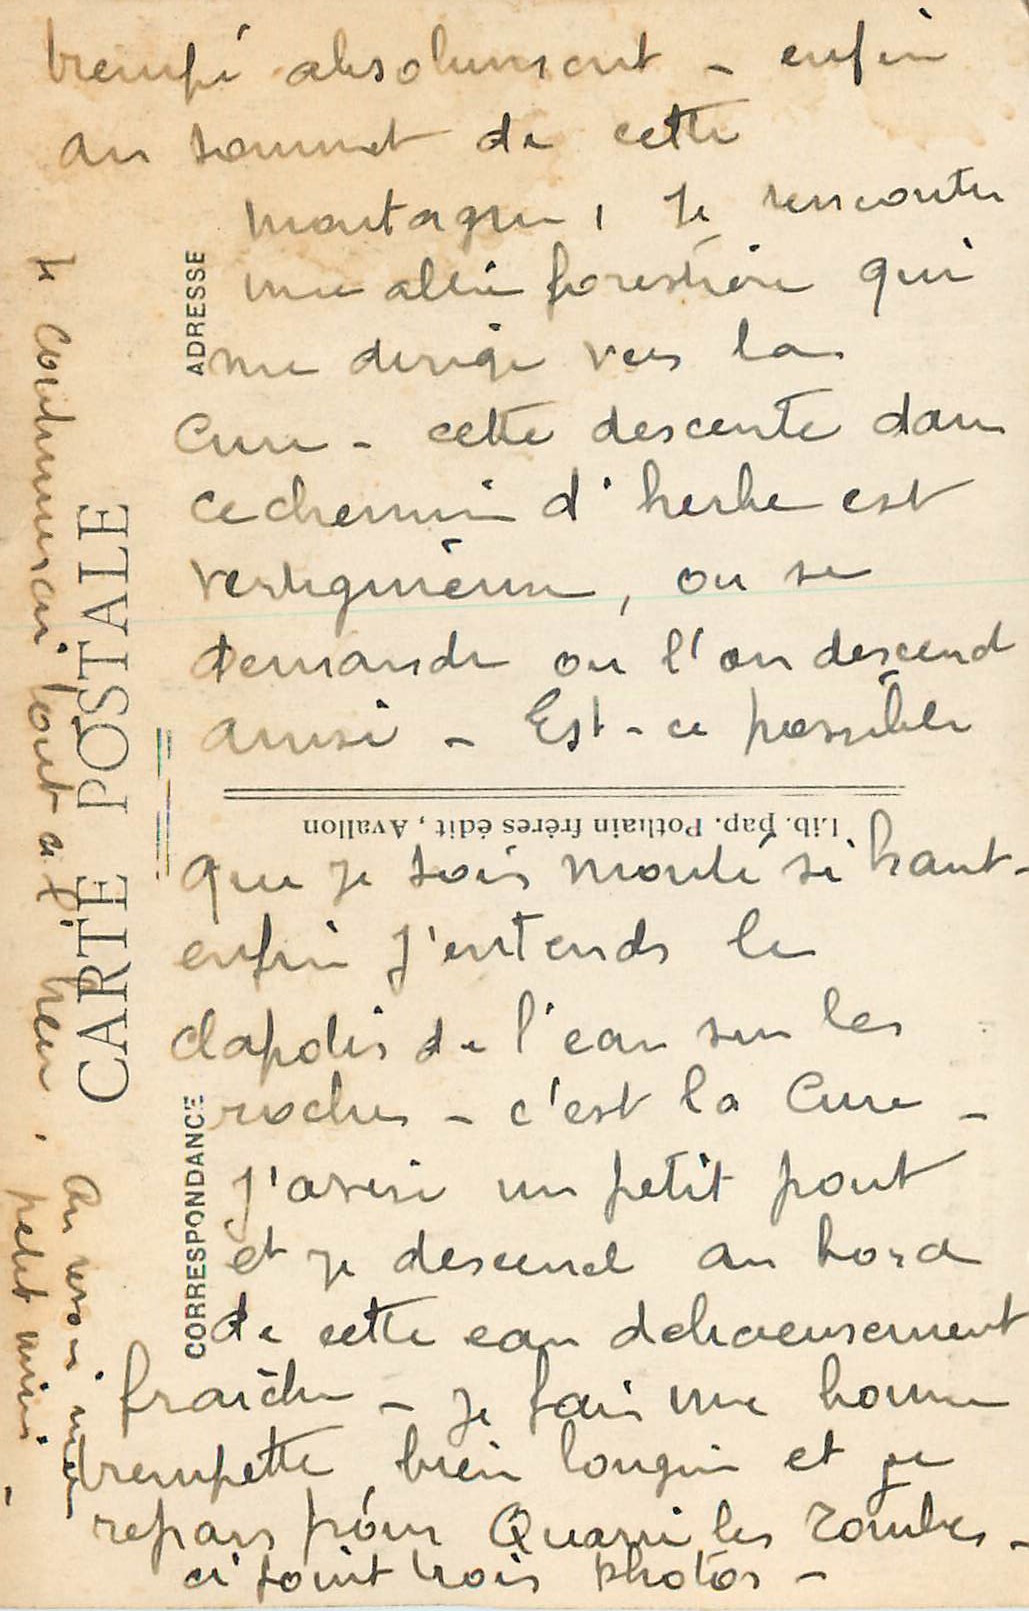 trempé absolument - enfin
au sommet de cette
montagne, je rencontre
une allée forestière qui
me dirige vers la
Cure - cette descente dans
ce chemin d'herbe est
vertigineuse, on se
demande où l'on descend
ainsi - Est-ce possible
que je sois monté si haut -
enfin j'entends le
clapotis de l'eau sur les
roches - c'est la Cure -
j'avise un petit pont
et je descend au bord
de cette eau delicieusement
fraîche - je fais une bonne
trempette bien longue et je
repars pour Quarré les Tombes -
ci joint trois photos -
je continuerai tout à l'heure.
Au revoir mon
petit mimi.
CARTE POSTALE
CORRESPONDANCE
ADRESSE
Lib. pap. Pothain frères édit, Avallon